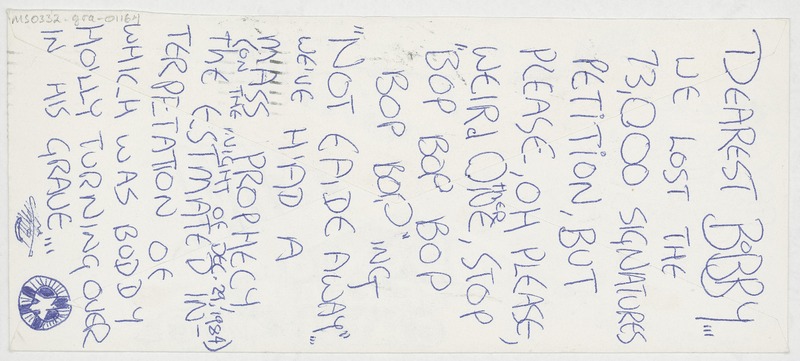 MS0332-gra-01164
"DEAREST BOBBY"...
WE LOST THE
73,000 SIGNATURES
PETITION, BUT
PLEASE, OH PLEASE,
WEIRD OTHER ONE, STOP
"BOP BOP BOP
BOP BOP"ING
"NOT FAIDE AWAY"...
WEIVE HIAD A
MASS PROPHECY
(ON THE NIGHT OF DEC. 29, 1984)
THE ESTMATED IN-
TERPETATION OF
WHICH WAS BUDDY
HOLLY TURNING OVER
IN HIS GRAVE"...